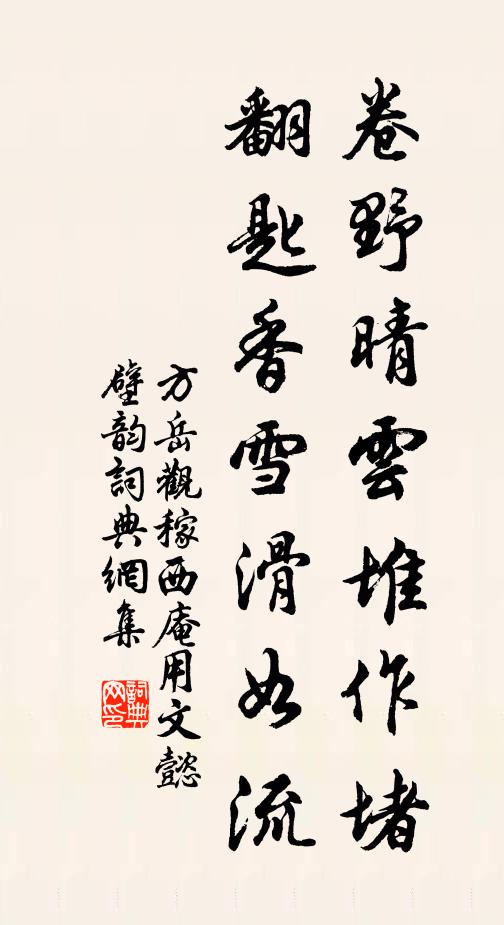 卷野晴雲堆作堵
翻匙香雪滑如流
方岳觀稼西庵用文懿
璧韵詞典網集
詞典網印